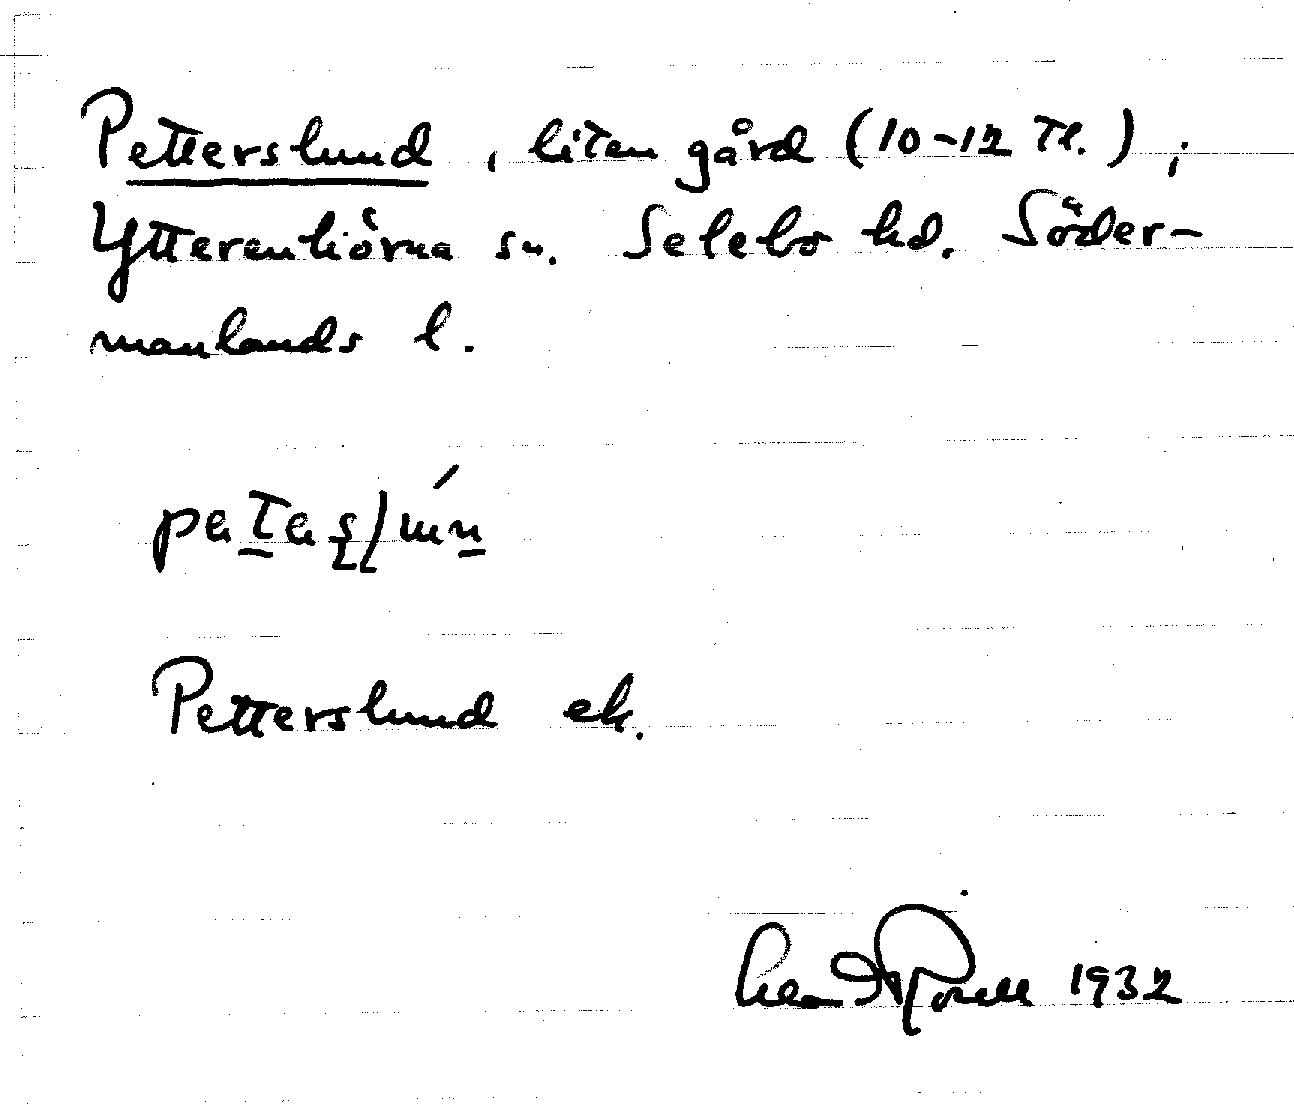 Petterslund, liten gård (10-12 Tl.) ;
Ytterenhörna sn. Selebo hd. Söder-
manlands l.
Petterslund ek.
1932